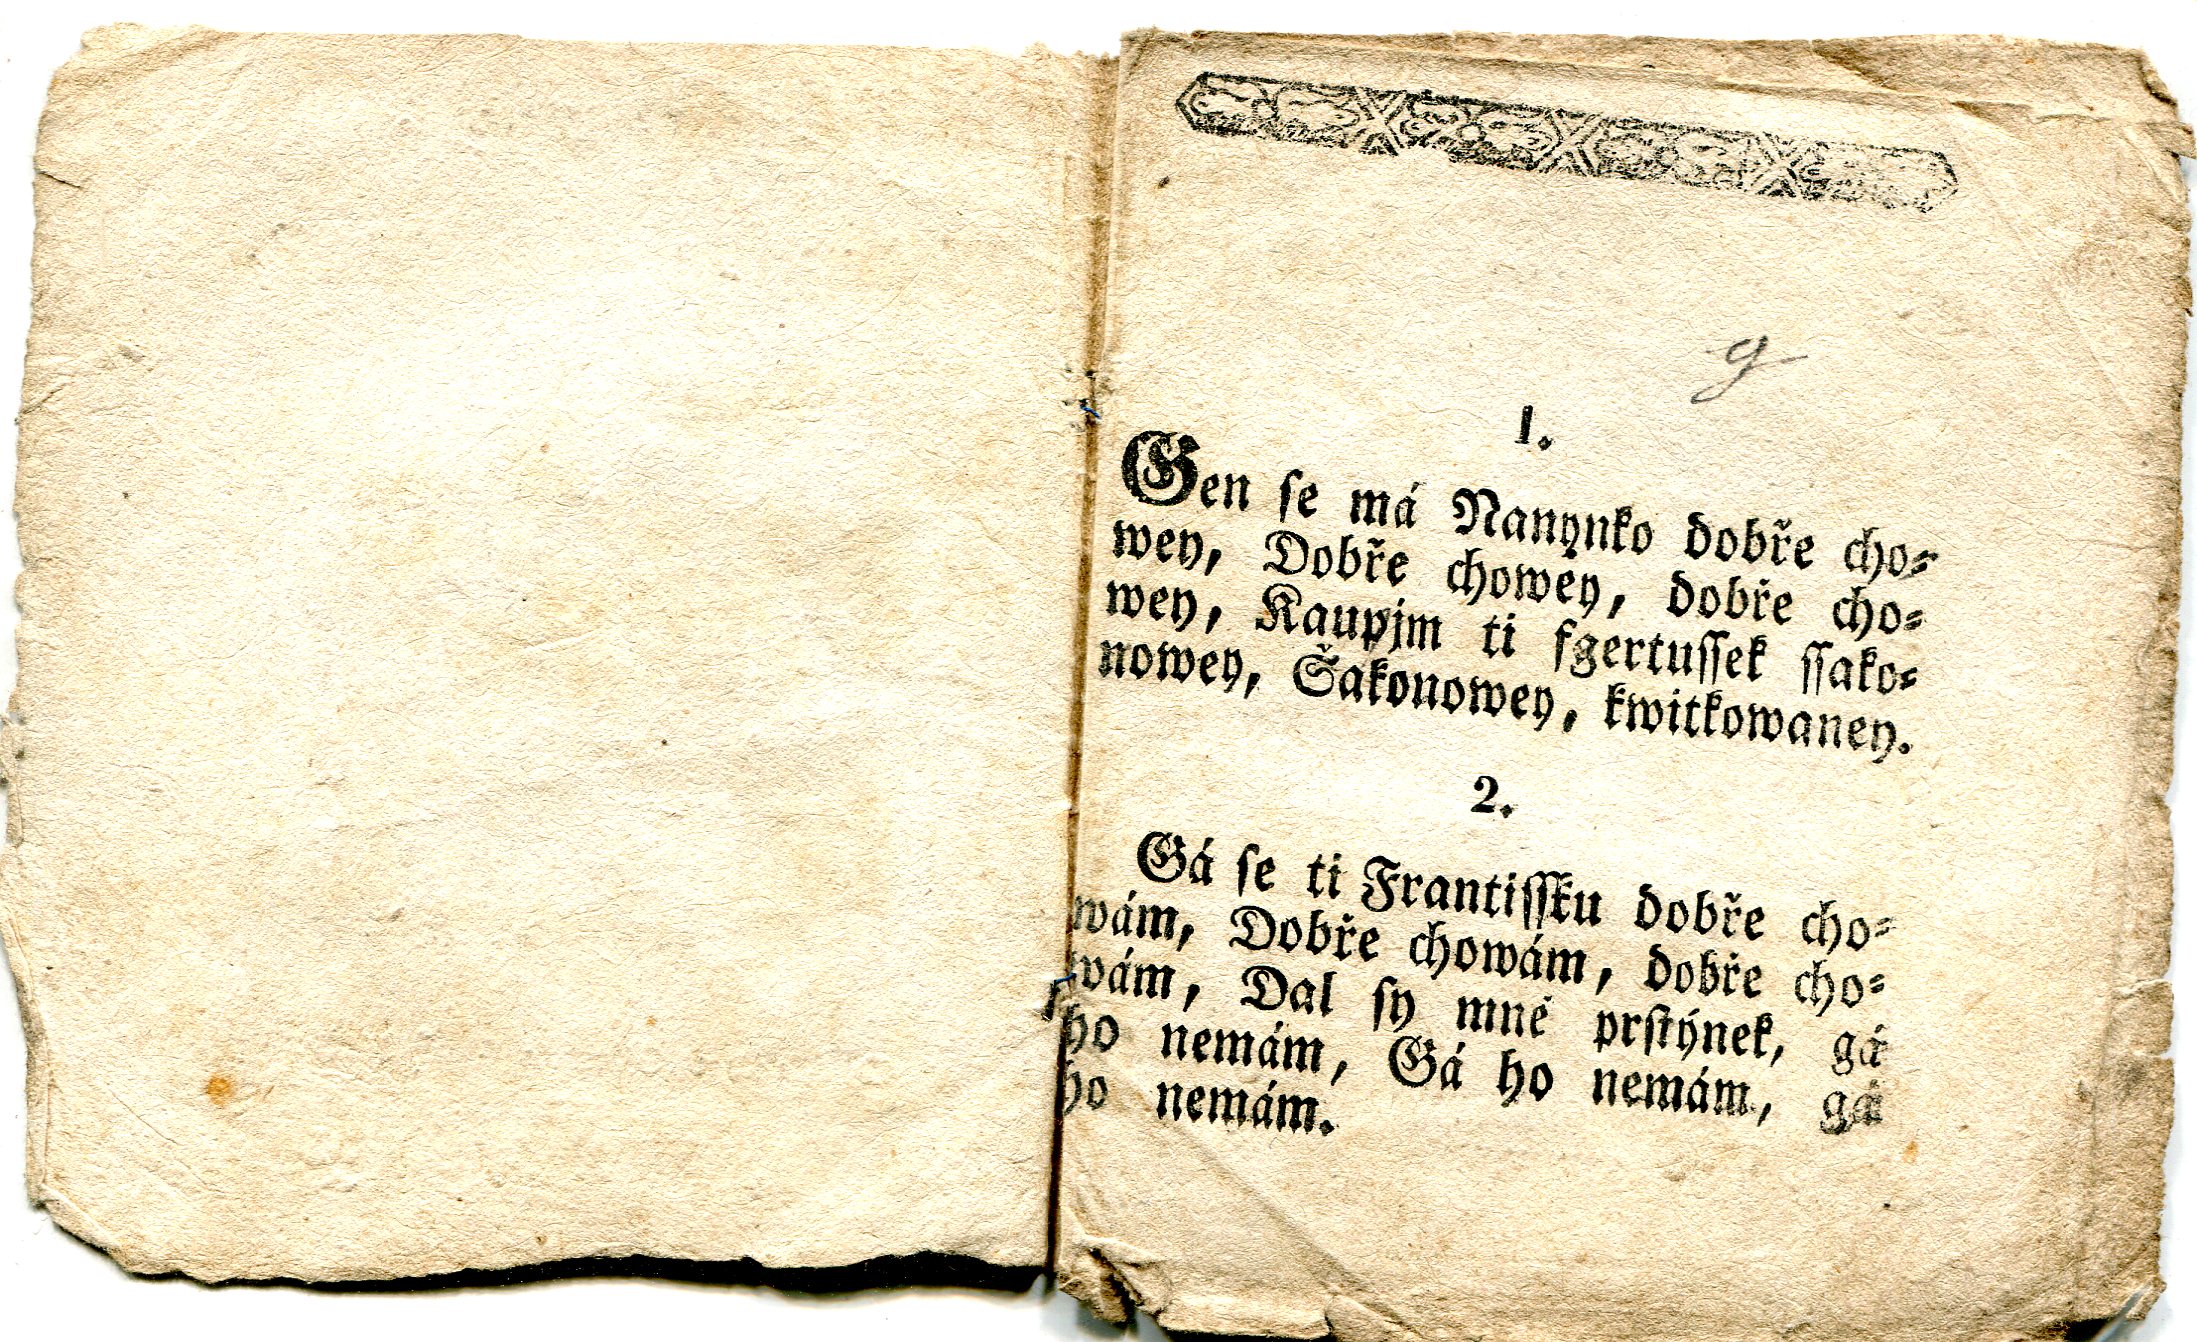 g
1.
Gen se má Nanynko dobře cho-
wey, Dobře chowey, dobře cho-
wey, Kaupjm ti fgertussek ssako-
nowey, Šakonowey, kwitkowaney.
2.
Gá se ti Frantissku dobře cho-
wám, Dobře chowám, dobře cho-
wám, Dal sy mně prstýnek, gá
ho nemám, Gá ho nemám, gá
ho nemám.